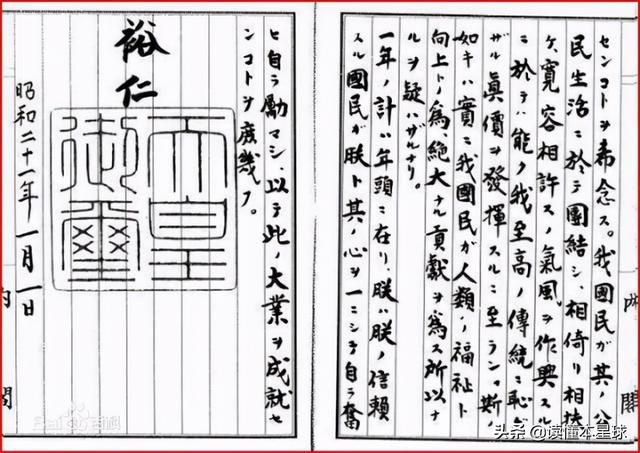 内閣
センコトヲ希念ス。我國民ガ其ノ公
民生活ニ於テ團結シ、相倚リ相扶
ケ、寛容相許スノ氣風ヲ作興スル
ニ於テハ能ク我至高ノ傳統ニ恥ヂ
ザル眞價ヲ發揮スルニ至ラン。斯ノ
如キハ實ニ我國民ガ人類ノ福祉ト
向上トノ爲、絶大ナル貢獻ヲ爲ス所以ナ
ルヲ疑ハザルナリ。
一年ノ計ハ年頭ニ在リ、朕ハ朕ノ信賴
スル國民ガ朕ト其ノ心ヲ一ニシテ自ラ奮
ヒ自ラ勵マシ、以テ此ノ大業ヲ成就セ
ンコトヲ庶幾フ。
裕仁
天皇
御璽
昭和二十一年一月一日
内閣
Baidu百科
头条 @读懂本星球